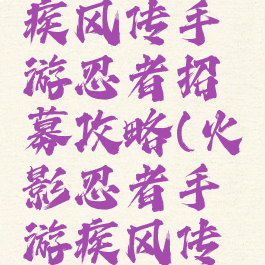 疾风传手
游忍者招
募攻略(火
影忍者手
游疾风传